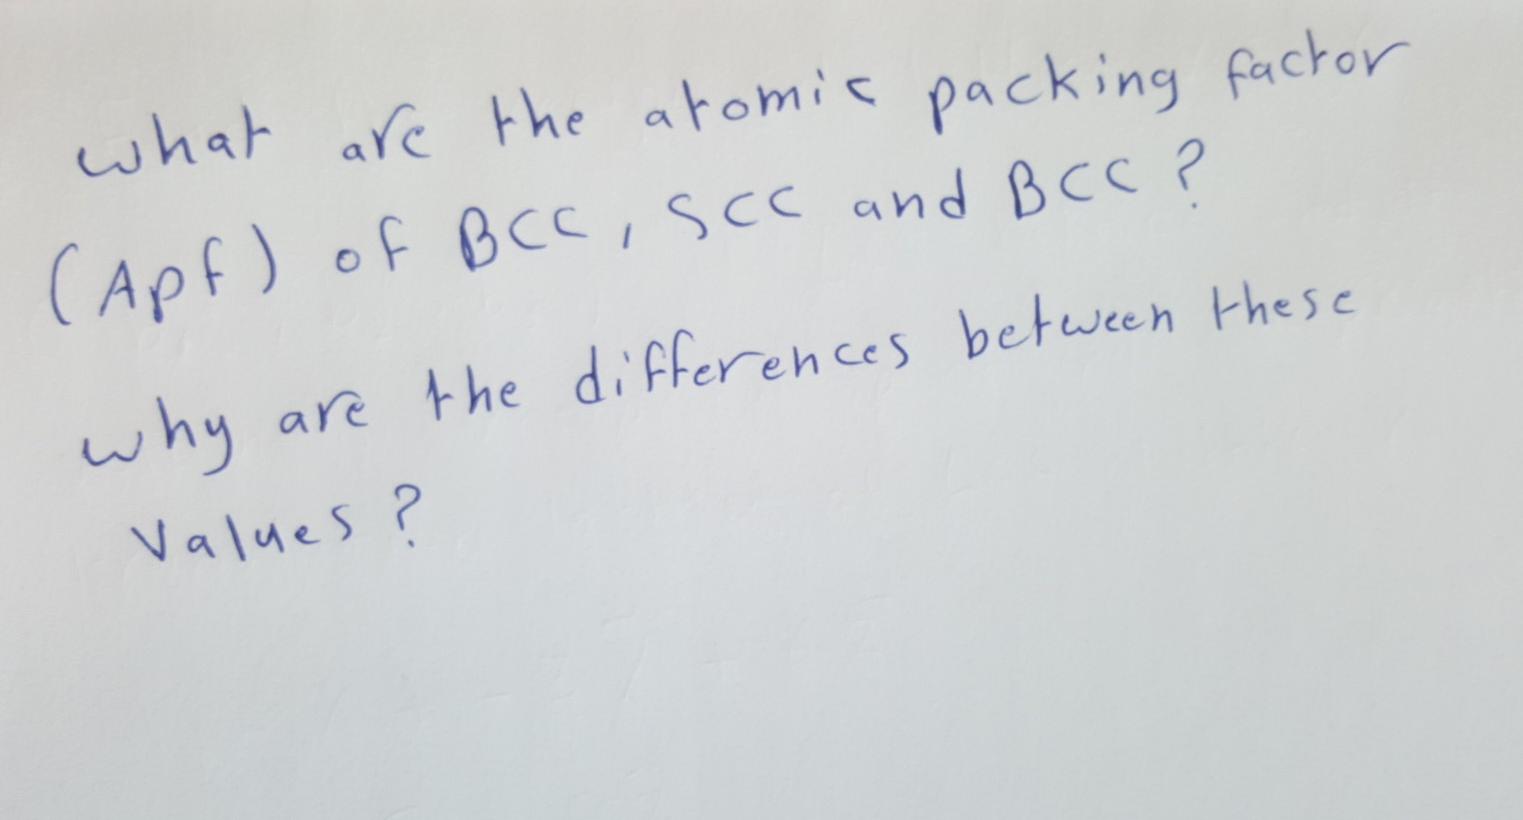 what are the atomic packing factor
(Apf) of BCC, SCC and BCC ?
why are the differences between these
values ?